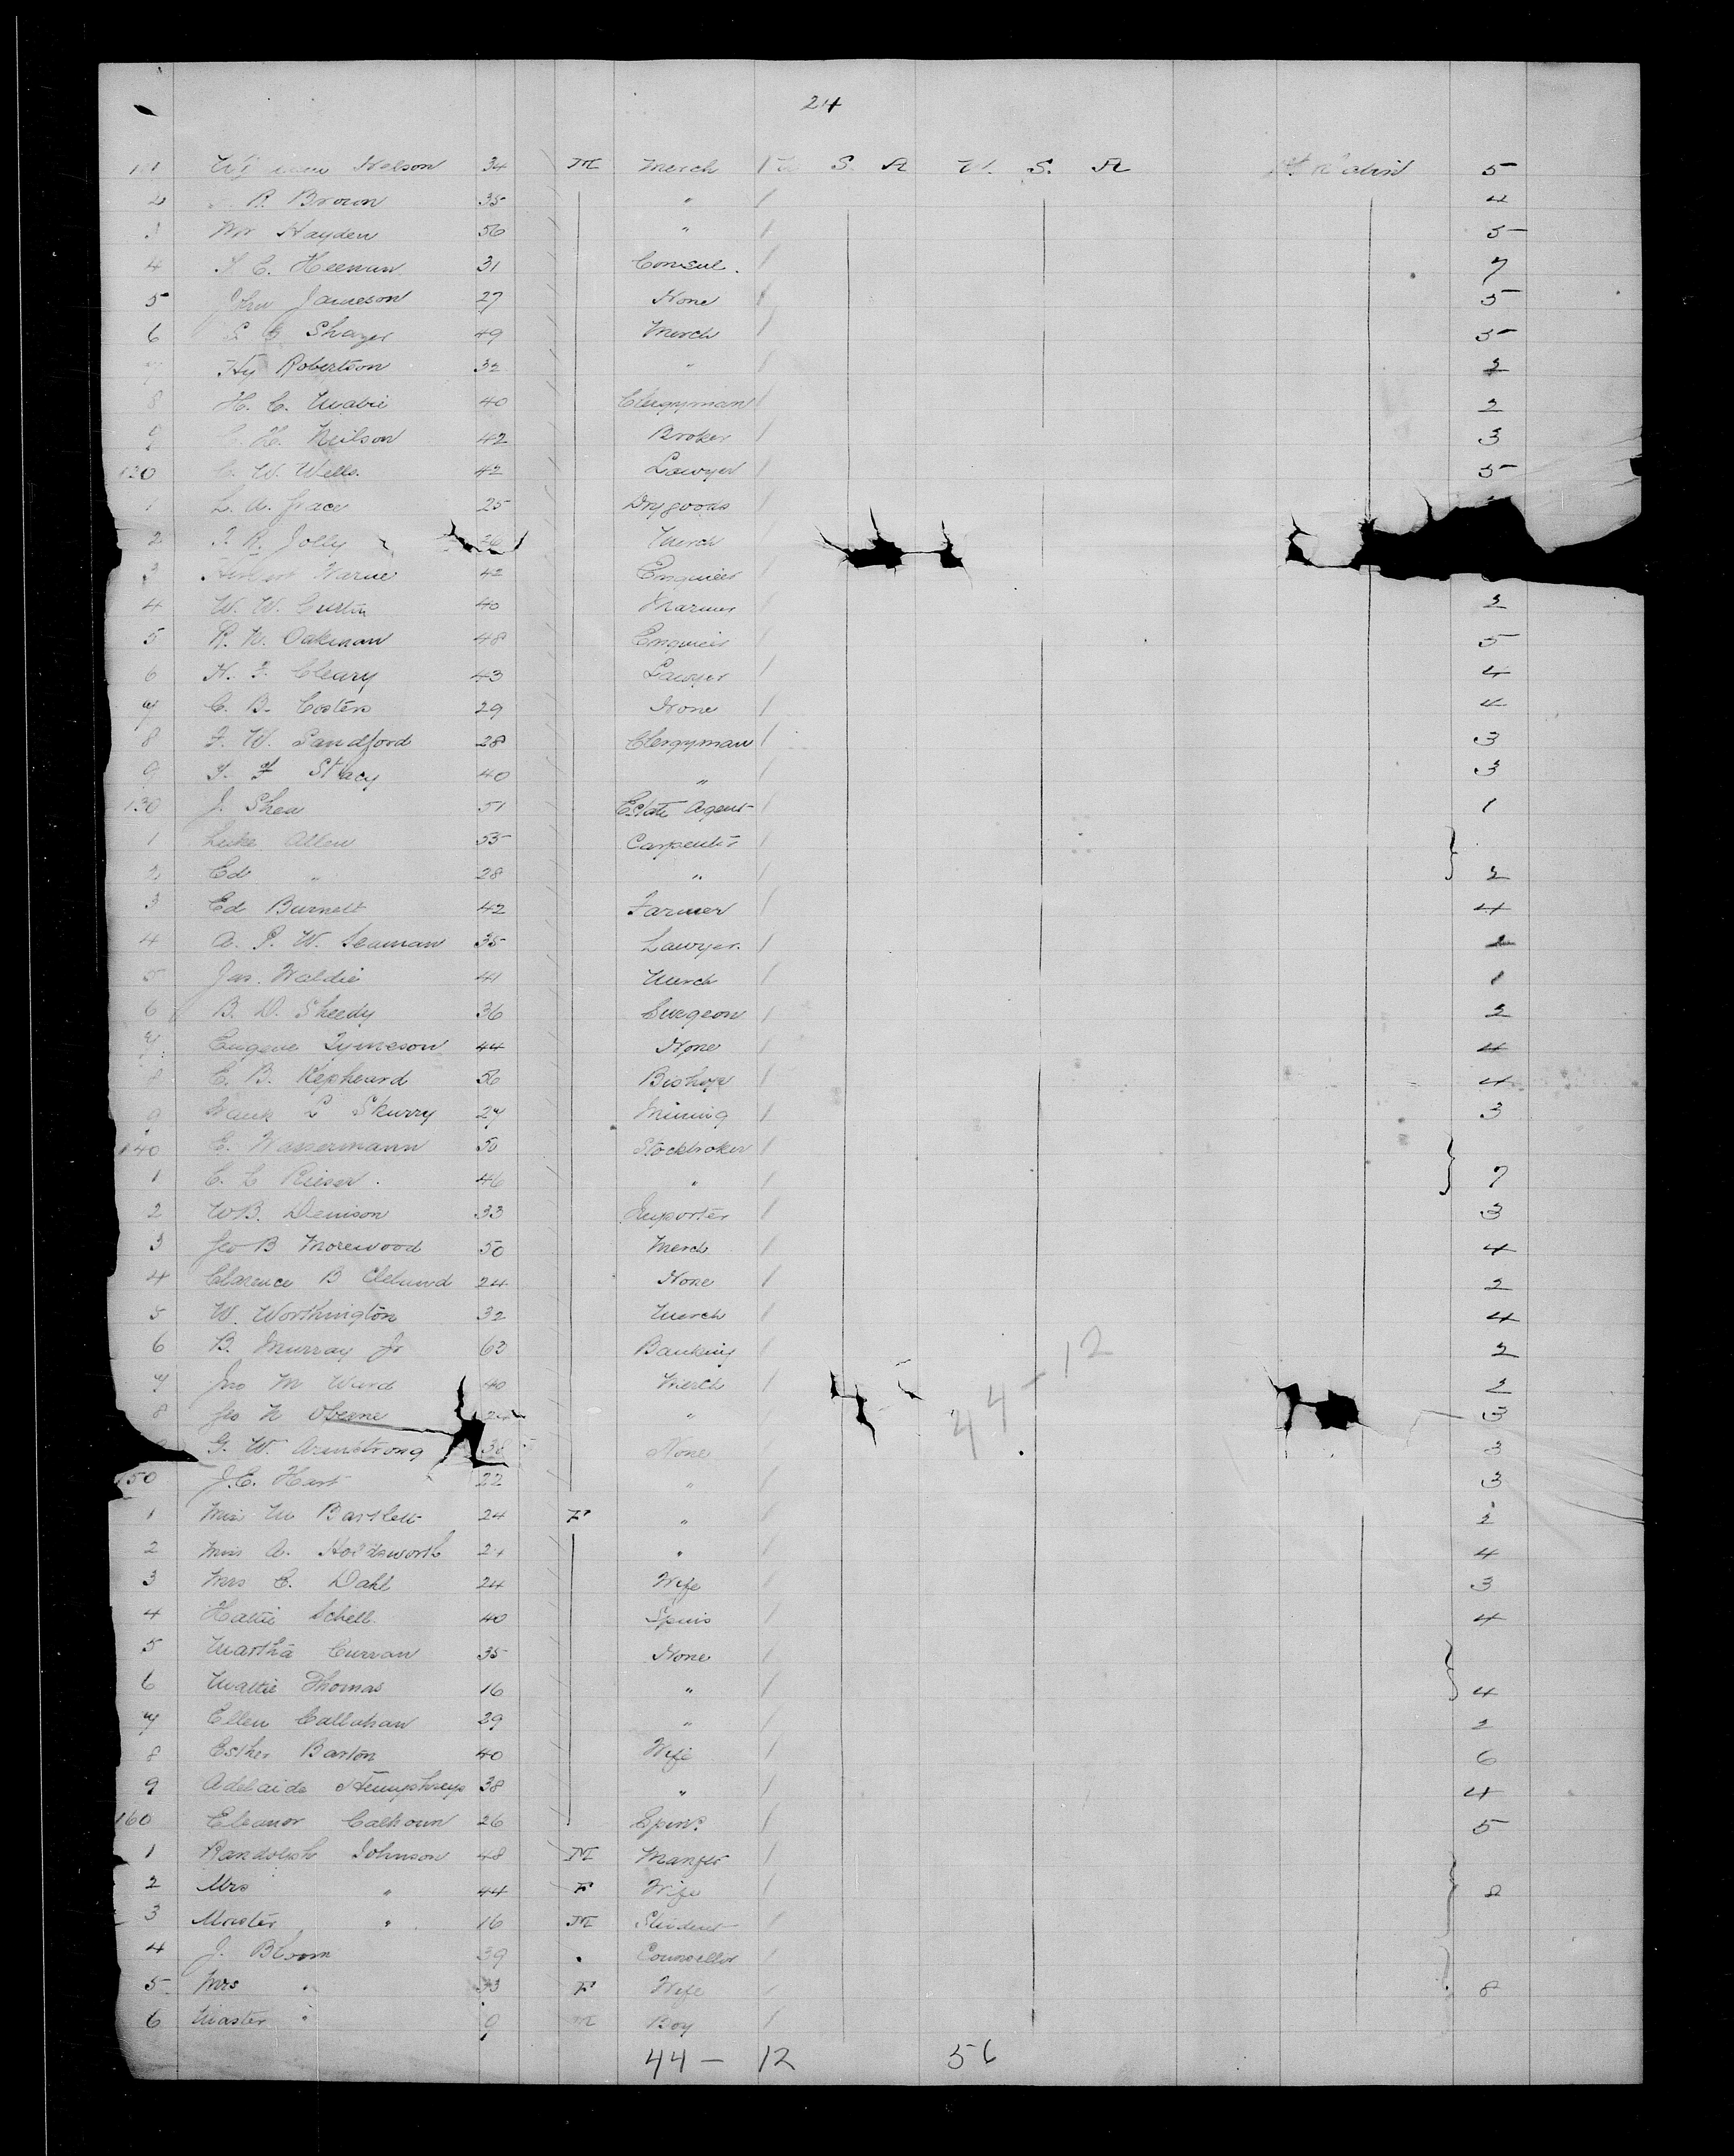 24
William Nelson 34 M Merch U S A U. S. A 1st Cabin 5
2 R Brown 35 " 4
3 Wm Hayden 56 " 5
4 Heenan 31 Consul. 7
5 John Jameson 27 None 5
6 Shayer 49 Merch 5
7 Hy Robertson 32 " 2
8 H. C. Mabie 40 Clergyman 2
9 H. Neilson 42 Broker 3
120 W. Wells 42 Lawyer 5
1 L. A. Grace 25 Drygoods
2 R. Jolly 26 Merch
3 Warne 42 Engineer
4 W. W. Curtin 40 Mariner 2
5 R. W. Oakman 48 Engineer 5
6 H. F. Cleary 43 Lawyer 4
7 C. B. Coster 29 None 4
8 F. W. Sandford 28 Clergyman 3
9 Stacy 40 " 3
130 J. Shea 51 Estate Agent 1
1 Luke Allen 55 Carpenter
2 Ed " 28 " 2
3 Ed Burnett 42 Farmer 4
4 A. P. W. Seaman 35 Lawyer. 1
5 Jas. Waldie 41 Merch 1
6 B. D. Sheedy 36 Surgeon 2
7 Eugene Tymeson 44 None 4
8 E. B. Kepheard 56 Bishop 4
9 L Skurry 27 Mining 3
140 E. Wassermann 50 Stockbroker
1 C. L Rieser. 46 " 7
2 W B. Denison 33 Importer 3
3 Geo B Morewood 50 Merch 4
4 Clarence B Cleland 24 None 2
5 W. Worthington 32 Merch 4
6 B. Murray Jr 63 Banking 2
7 Jno M Ward 40 Merch 2
8 Geo N Oberne 24 " 3
G. W. Armstrong 38 None 3
150 J. E. Hart 22 " 3
44 - 12
1 Miss M Bartlett 24 F " 2
2 Miss A. Holdsworth 24 " 4
3 Mrs C. Dahl 24 Wife 3
4 Hattie Schell. 40 Spins 4
5 Martha Curran 35 None
6 Mattie Thomas 16 " 4
7 Ellen Callahan 39 " 2
8 Esther Barton 40 Wife 6
9 Adelaide Humphreys 38 " 4
160 Eleanor Calhoun 26 Spins. 5
1 Randolph Johnson 48 M Manfer
2 Mrs " 44 F Wife 8
3 Master " 16 M Student
4 J. Bloom 39 " Counsellor
5 Mrs " 33 F Wife 8
6 Master " 9 M Boy
44 - 12 56